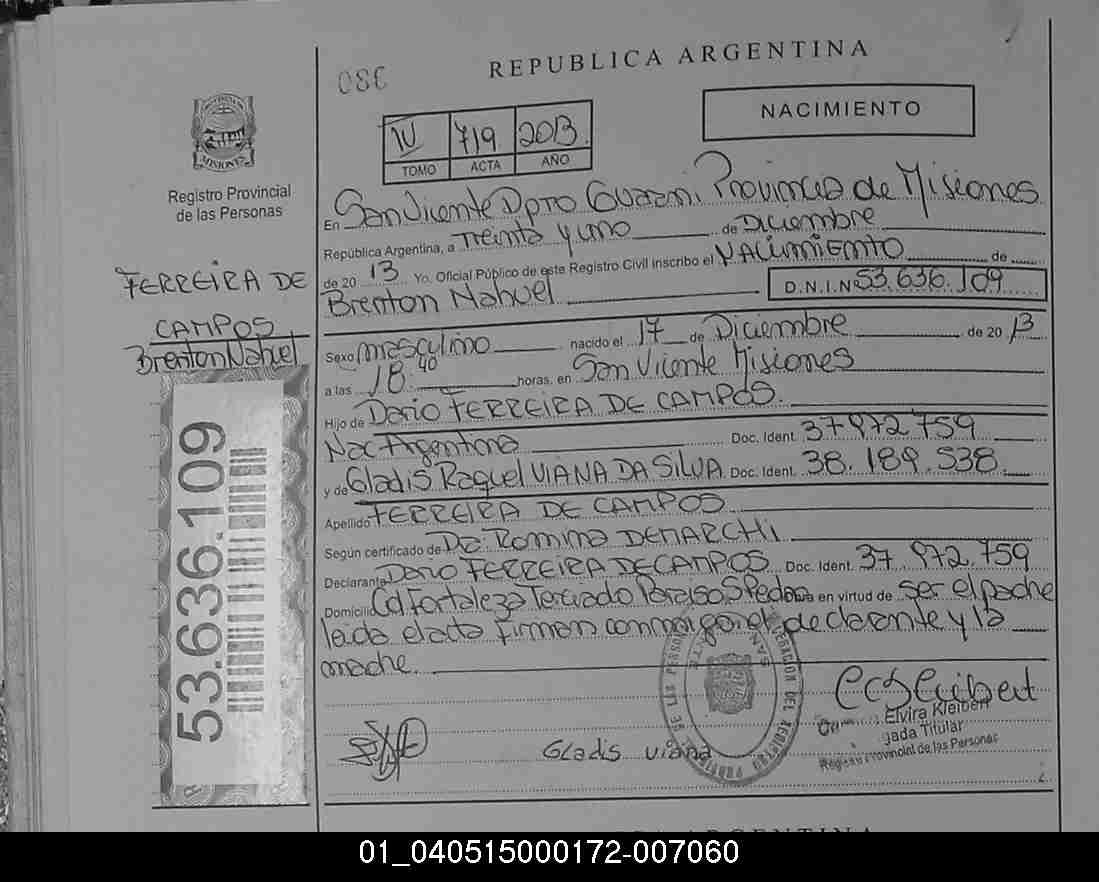 080
REPUBLICA ARGENTINA
NACIMIENTO
IV 719 2013
TOMO ACTA AÑO
PROVINCIA DE
MISIONES
Registro Provincial
de las Personas
FERREIRA DE
CAMPOS
Brenton Nahuel
53.636.109
En San Vicente Dpto Guarani Provincia de Misiones
República Argentina, a Treinta y uno de Diciembre
de 20 13 Yo, Oficial Público de este Registro Civil inscribo el NACIMIENTO de
Brenton Nahuel D.N.I.Nº 53.636.109
Sexo masculino nacido el 17 de Diciembre de 20 13
a las 18:40 horas, en San Vicente Misiones
Hijo de Dario FERREIRA DE CAMPOS.
Nac Argentina Doc. Ident. 37972759
y de Gladis Raquel VIANA DA SILVA Doc. Ident. 38.189.538
Apellido FERREIRA DE CAMPOS
Según certificado de Dra Romina DEMARCHI
Declarante Dario FERREIRA DE CAMPOS Doc. Ident. 37.972.759
Domicilio Cd Fortaleza Terciado Paraiso S Pedro en virtud de ser el padre
leida el acta firman conmigo el declarante y la
madre.
Gladis Viana
Elvira Kleibert
gada Titular
Registro Provincial de las Personas
REPUBLICA ARGENTINA
01_040515000172-007060